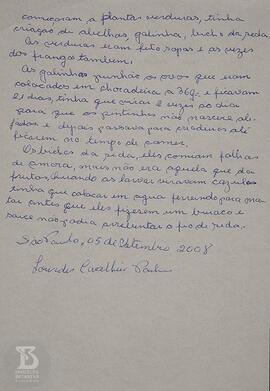 começaram a plantar verduras, tinha
criação de abelhas, galinha, bicho da seda.
As verduras eram feito sopas e as vezes
dos frangos tambem.
As galinhas punhão os ovos que eram
colocados em chocadeira a 36g. e ficavam
21 dias, tinha que virar 2 vezes ao dia
para que os pintinhos não nascere alei
jados e depois passava para criadores até
ficarem no tempo de comer.
Os bichos da sida, eles comiam folhas
de amora, mais não era aquela que da
frutos, quando as larvas viravam cazulos
tinha que colocar em agua fervendo para ma
tar antes que eles fizerem um buraco e
saice não podia arrebentar o fio de sida.
São Paulo, 05 de Setembro 2008
Lourdes
B